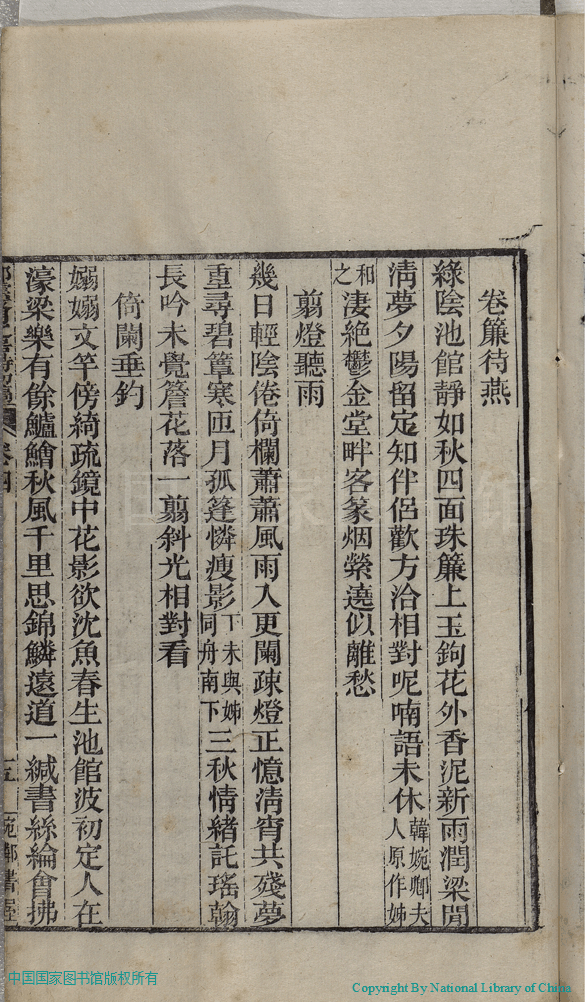 卷簾待燕
綠陰池館靜如秋四面珠簾上玉鉤花外香泥新雨潤梁間
清夢夕陽留定知伴侶歡方洽相對呢喃語未休韓婉卿夫人原作姊
和之淒絕鬱金堂畔客篆烟縈遶似離愁
翦燈聽雨
幾日輕陰倦倚欄蕭蕭風雨入更闌疎燈正憶清宵共殘夢
重尋碧簟寒匝月孤篷憐瘦影丁未與姊同舟南下三秋情緒託瑤翰
長吟未覺簷花落一翦斜光相對看
倚闌垂釣
嫋嫋文竿傍綺疏鏡中花影欲沈魚春生池館波初定人在
濠梁樂有餘鱸鱠秋風千里思錦鱗遠道一緘書絲綸會拂
卷四
十五
中国国家图书馆版权所有
Copyright By National Library of China